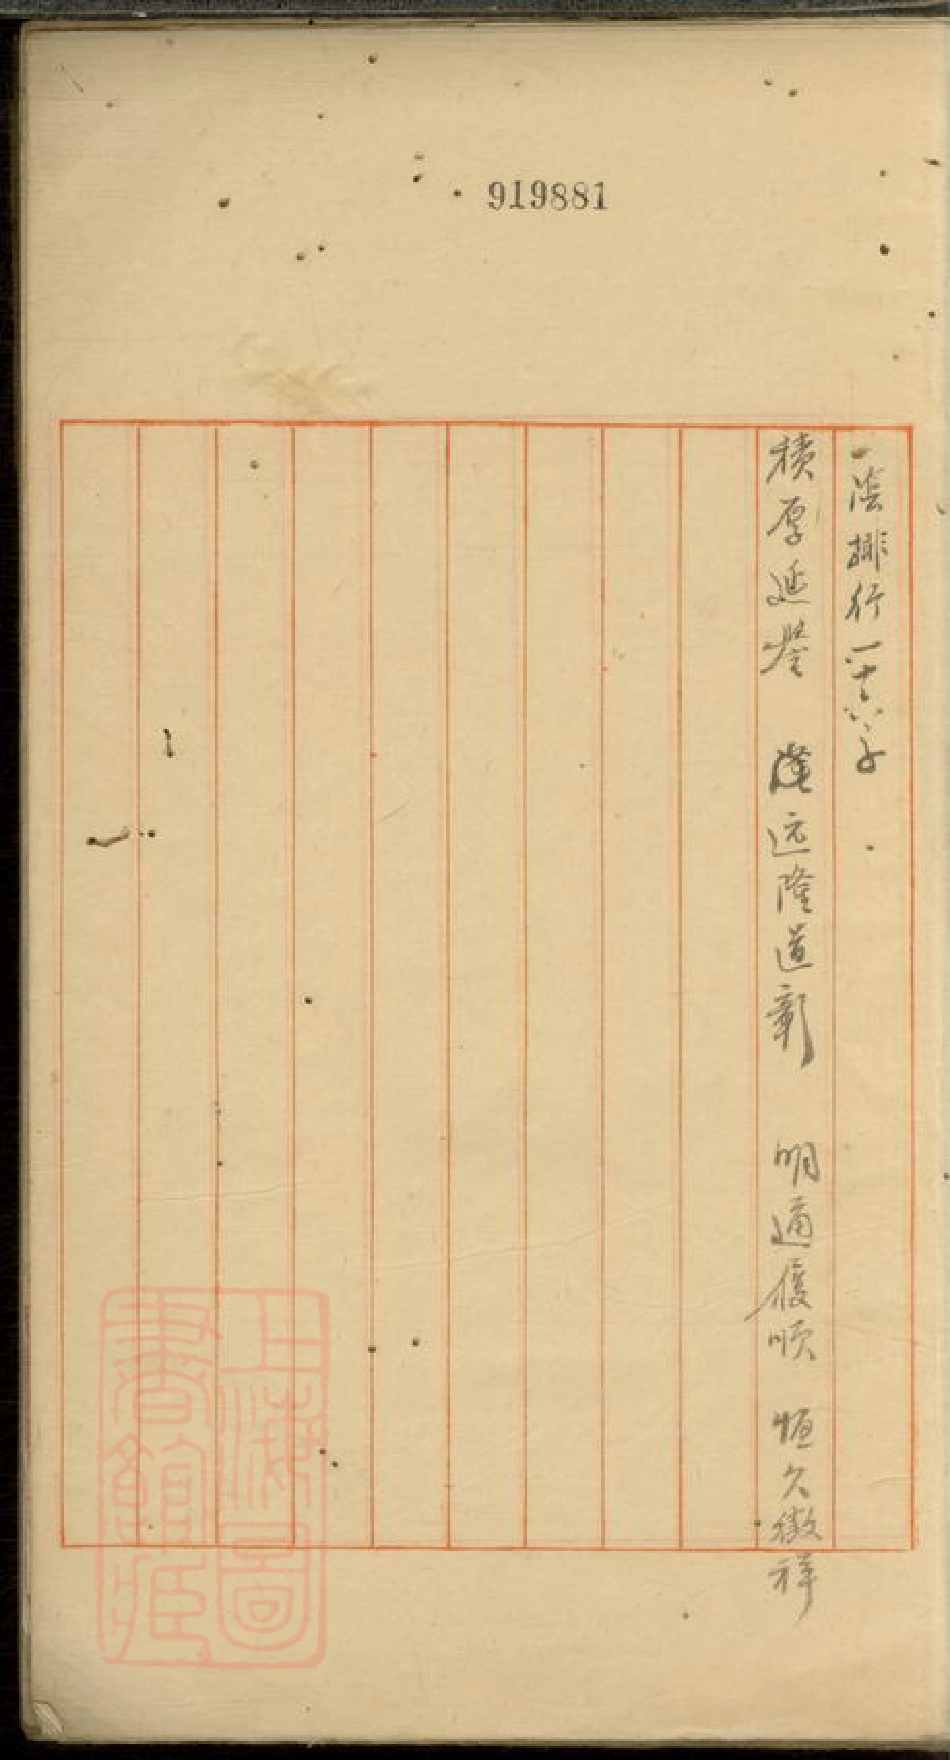 919881
排行一十六字
積厚延 遠隆道彰 明通履順 恒久徵祥
上海圖
書館藏